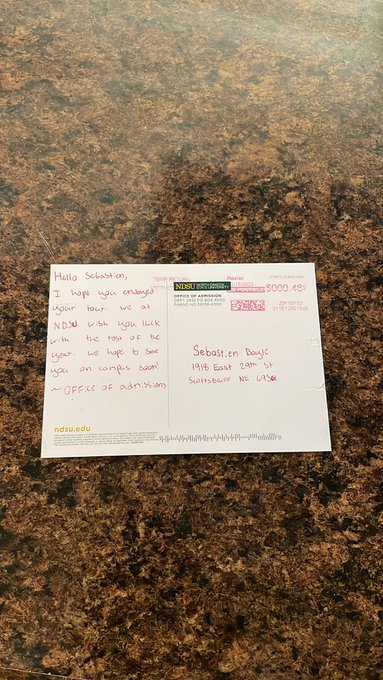 Hello Sebastien,
I hope you enjoyed
your tour. we at
NDSU wish you luck
with the rest of the
year. we hope to see
you on campus soon!
~ Office of admissions
ndsu.edu
NDSU
OFFICE OF ADMISSION
DEPT 2832 PO BOX 6050
FARGO ND 58108-6050
Hasler
FIRST-CLASS MAIL
$000.48⁰
ZIP 58102
Sebastien Boyle
1918 East 29th St
Scottsbluff NE 69361